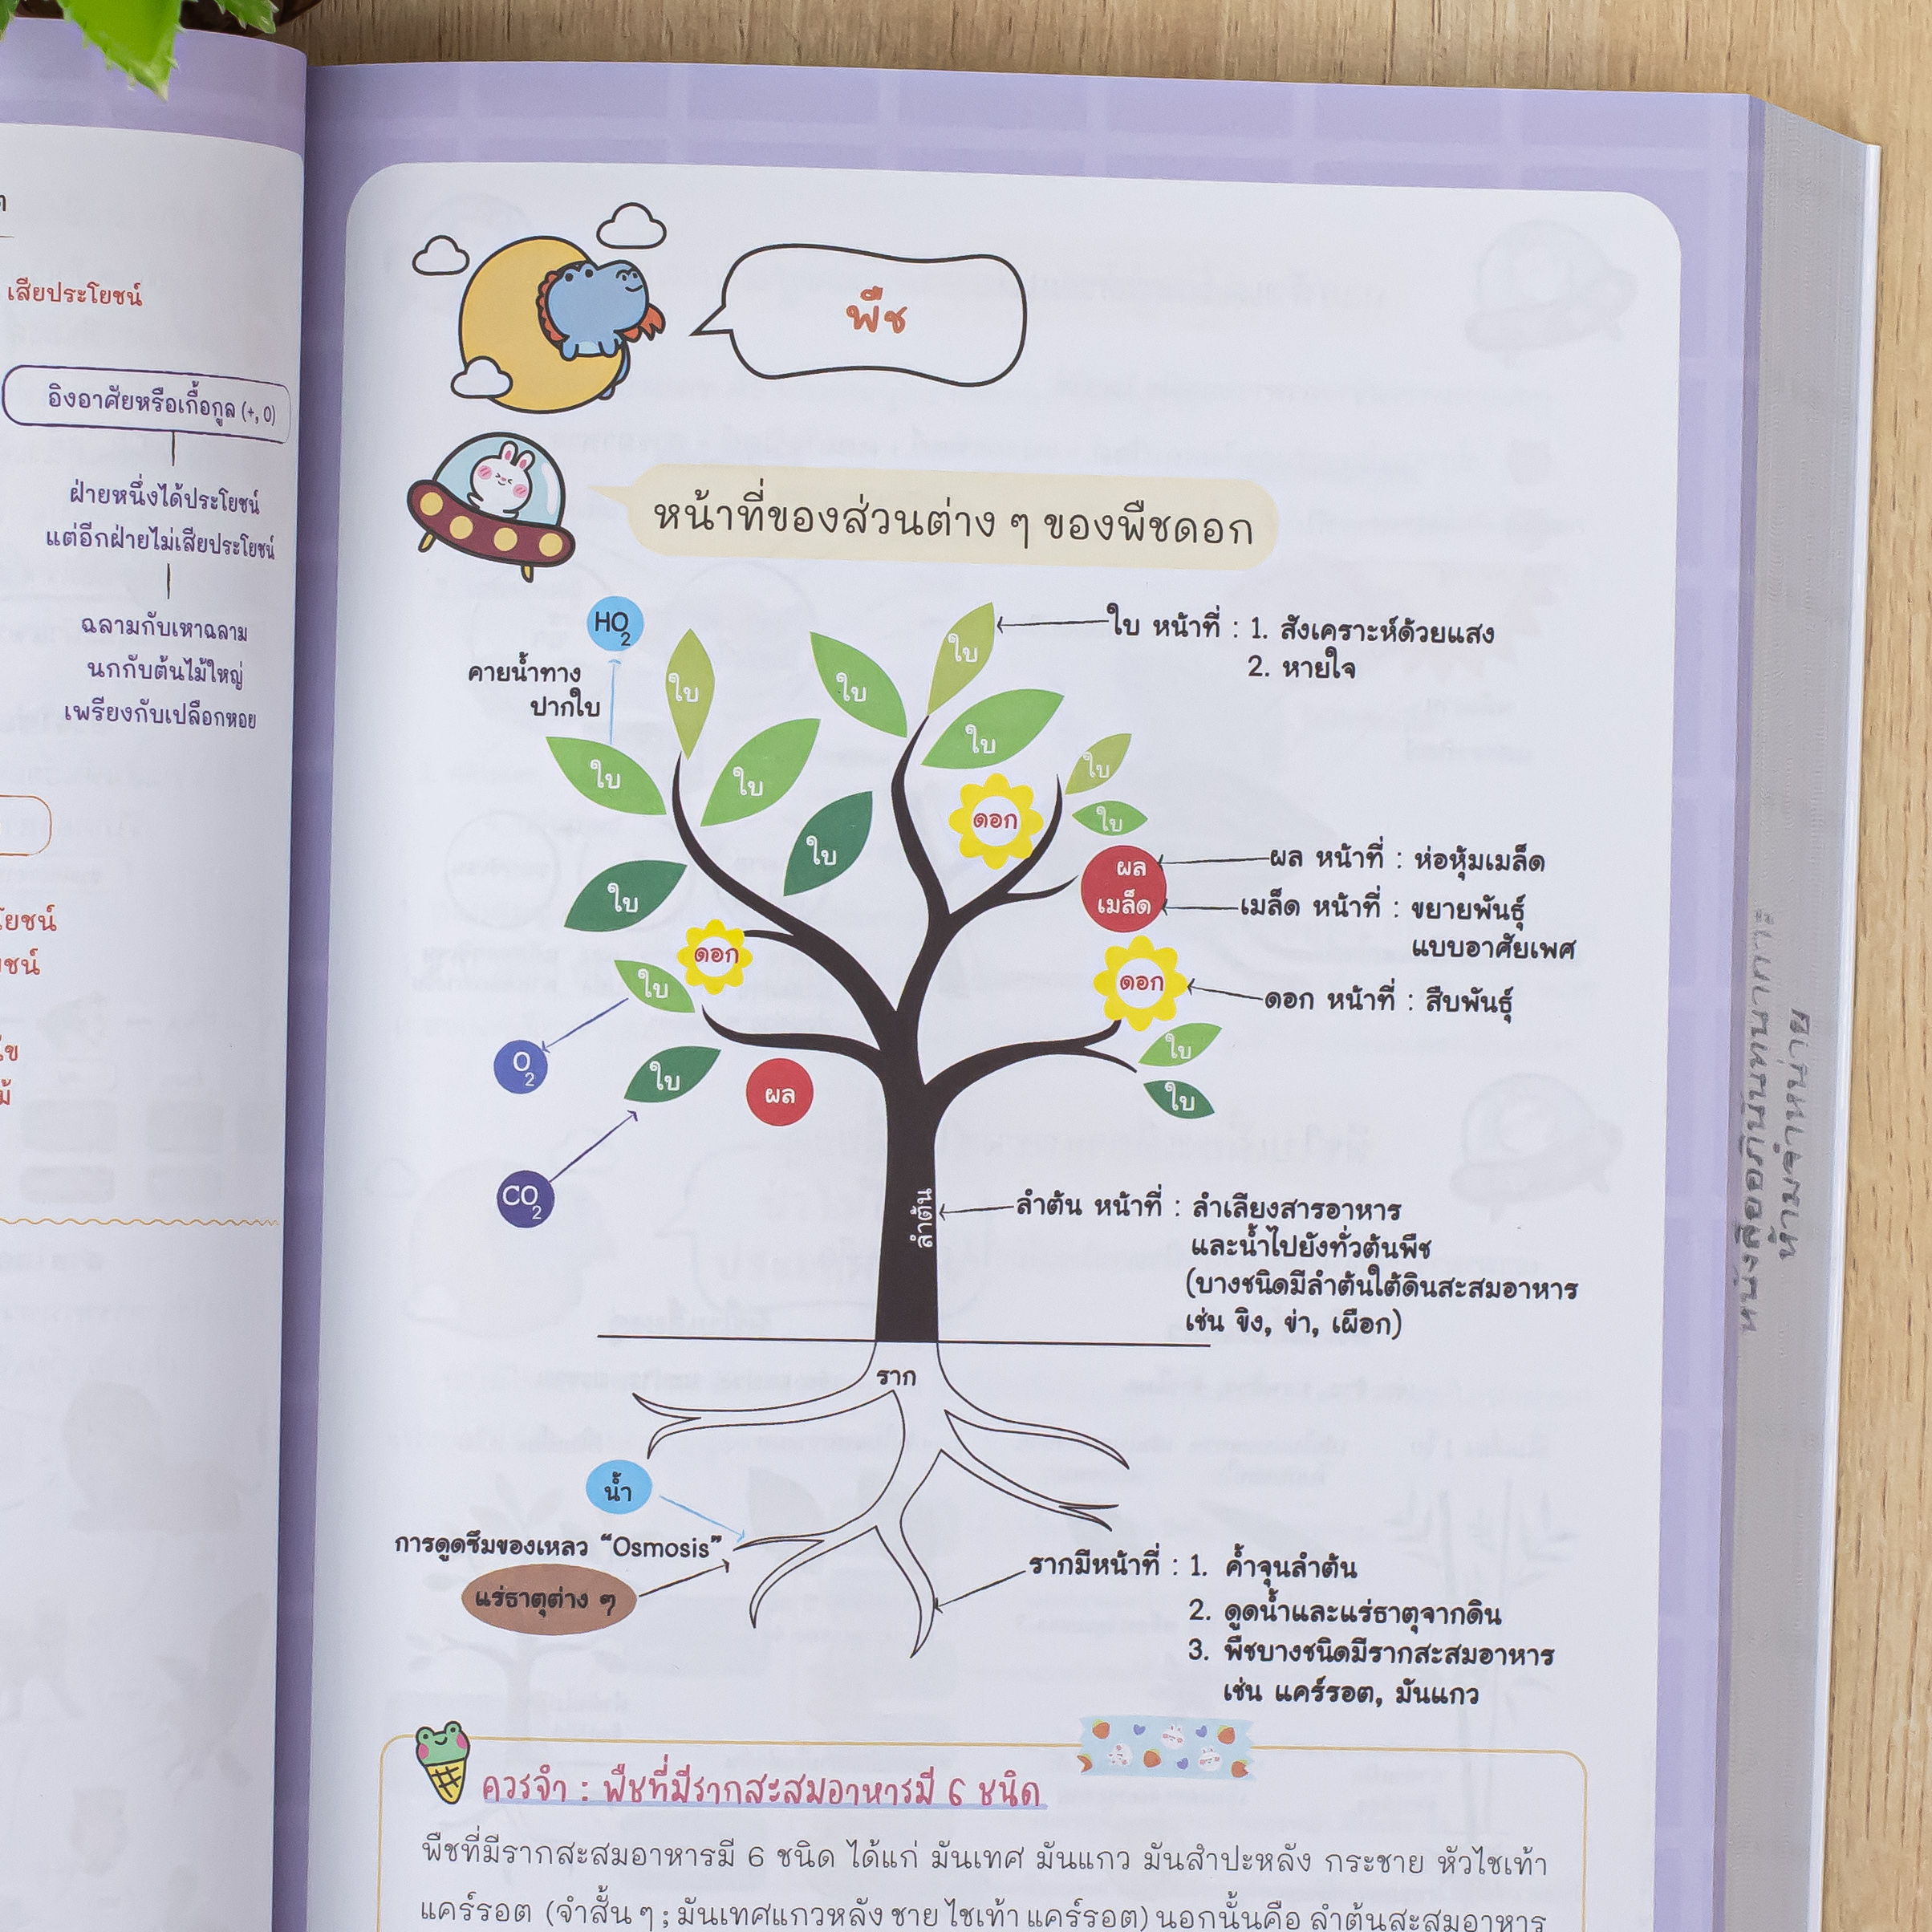 เสียประโยชน์
อิงอาศัยหรือเกื้อกูล (+, 0)
ฝ่ายหนึ่งได้ประโยชน์
แต่อีกฝ่ายไม่เสียประโยชน์
ฉลามกับเหาฉลาม
นกกับต้นไม้ใหญ่
เพรียงกับเปลือกหอย
พืช
หน้าที่ของส่วนต่าง ๆ ของพืชดอก
HO2
คายน้ำทาง
ปากใบ
ใบ
ใบ
ใบ
ใบ
ใบ
ใบ
ใบ
ใบ
ใบ
ใบ
ใบ
ใบ
ใบ
ใบ
ดอก
ดอก
ดอก
ผล
เมล็ด
ผล
O2
CO2
ใบ หน้าที่ : 1. สังเคราะห์ด้วยแสง
2. หายใจ
ผล หน้าที่ : ห่อหุ้มเมล็ด
เมล็ด หน้าที่ : ขยายพันธุ์
แบบอาศัยเพศ
ดอก หน้าที่ : สืบพันธุ์
ลำต้น
ลำต้น หน้าที่ : ลำเลียงสารอาหาร
และน้ำไปยังทั่วต้นพืช
(บางชนิดมีลำต้นใต้ดินสะสมอาหาร
เช่น ขิง, ข่า, เผือก)
ราก
น้ำ
การดูดซึมของเหลว “Osmosis”
แร่ธาตุต่าง ๆ
รากมีหน้าที่ : 1. ค้ำจุนลำต้น
2. ดูดน้ำและแร่ธาตุจากดิน
3. พืชบางชนิดมีรากสะสมอาหาร
เช่น แคร์รอต, มันแกว
ควรจำ : พืชที่มีรากสะสมอาหารมี 6 ชนิด
พืชที่มีรากสะสมอาหารมี 6 ชนิด ได้แก่ มันเทศ มันแกว มันสำปะหลัง กระชาย หัวไชเท้า
แคร์รอต (จำสั้น ๆ ; มันเทศแกวหลัง ชาย ไชเท้า แคร์รอต) นอกนั้นคือ ลำต้นสะสมอาหาร